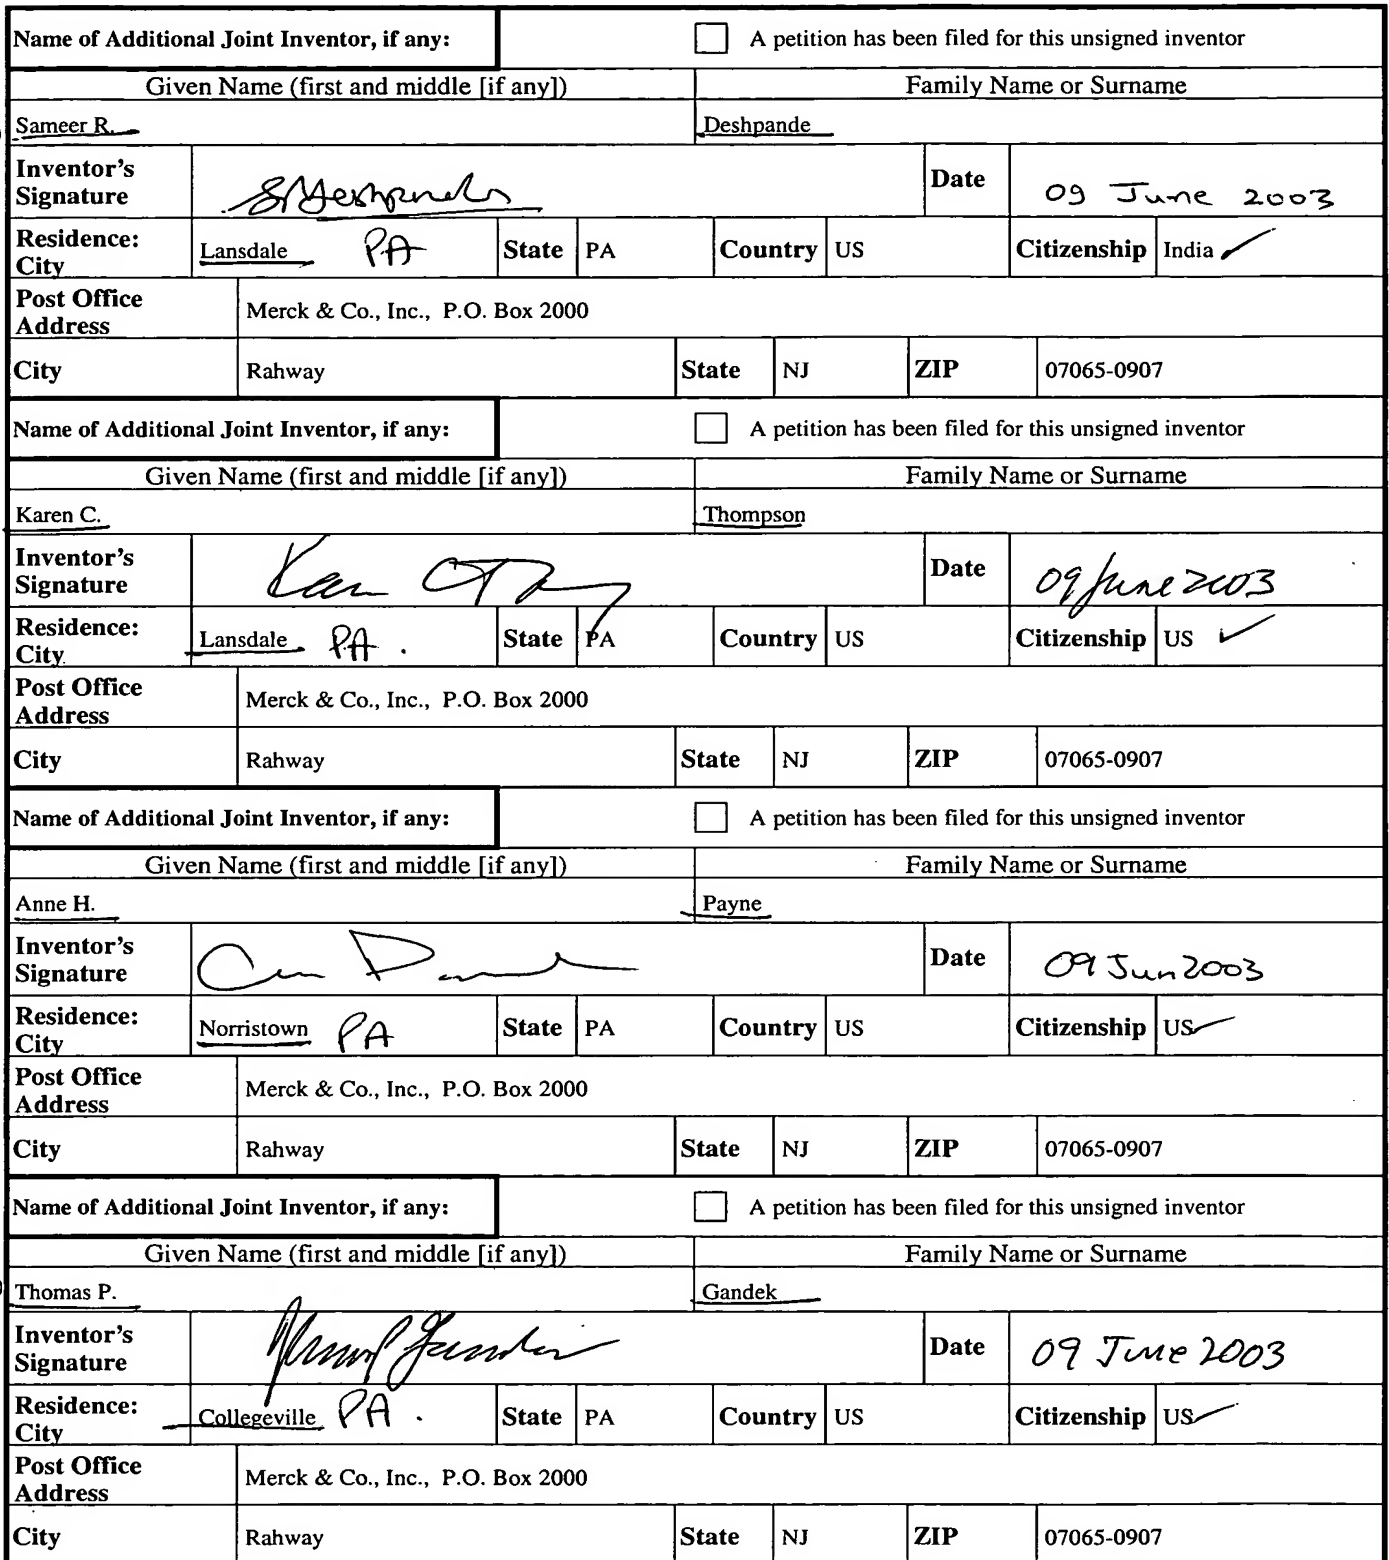 Name of Additional Joint Inventor, if any: A petition has been filed for this unsigned inventor
Given Name (first and middle [if any]) Family Name or Surname
Sameer R. Deshpande
Inventor's Signature Date 09 June 2003
Residence: City Lansdale PA State PA Country US Citizenship India
Post Office Address Merck & Co., Inc., P.O. Box 2000
City Rahway State NJ ZIP 07065-0907
Name of Additional Joint Inventor, if any: A petition has been filed for this unsigned inventor
Given Name (first and middle [if any]) Family Name or Surname
Karen C. Thompson
Inventor's Signature Date 09 June 2003
Residence: City Lansdale PA. State PA Country US Citizenship US
Post Office Address Merck & Co., Inc., P.O. Box 2000
City Rahway State NJ ZIP 07065-0907
Name of Additional Joint Inventor, if any: A petition has been filed for this unsigned inventor
Given Name (first and middle [if any]) Family Name or Surname
Anne H. Payne
Inventor's Signature Date 09 Jun 2003
Residence: City Norristown PA State PA Country US Citizenship US
Post Office Address Merck & Co., Inc., P.O. Box 2000
City Rahway State NJ ZIP 07065-0907
Name of Additional Joint Inventor, if any: A petition has been filed for this unsigned inventor
Given Name (first and middle [if any]) Family Name or Surname
Thomas P. Gandek
Inventor's Signature Date 09 June 2003
Residence: City Collegeville PA. State PA Country US Citizenship US
Post Office Address Merck & Co., Inc., P.O. Box 2000
City Rahway State NJ ZIP 07065-0907